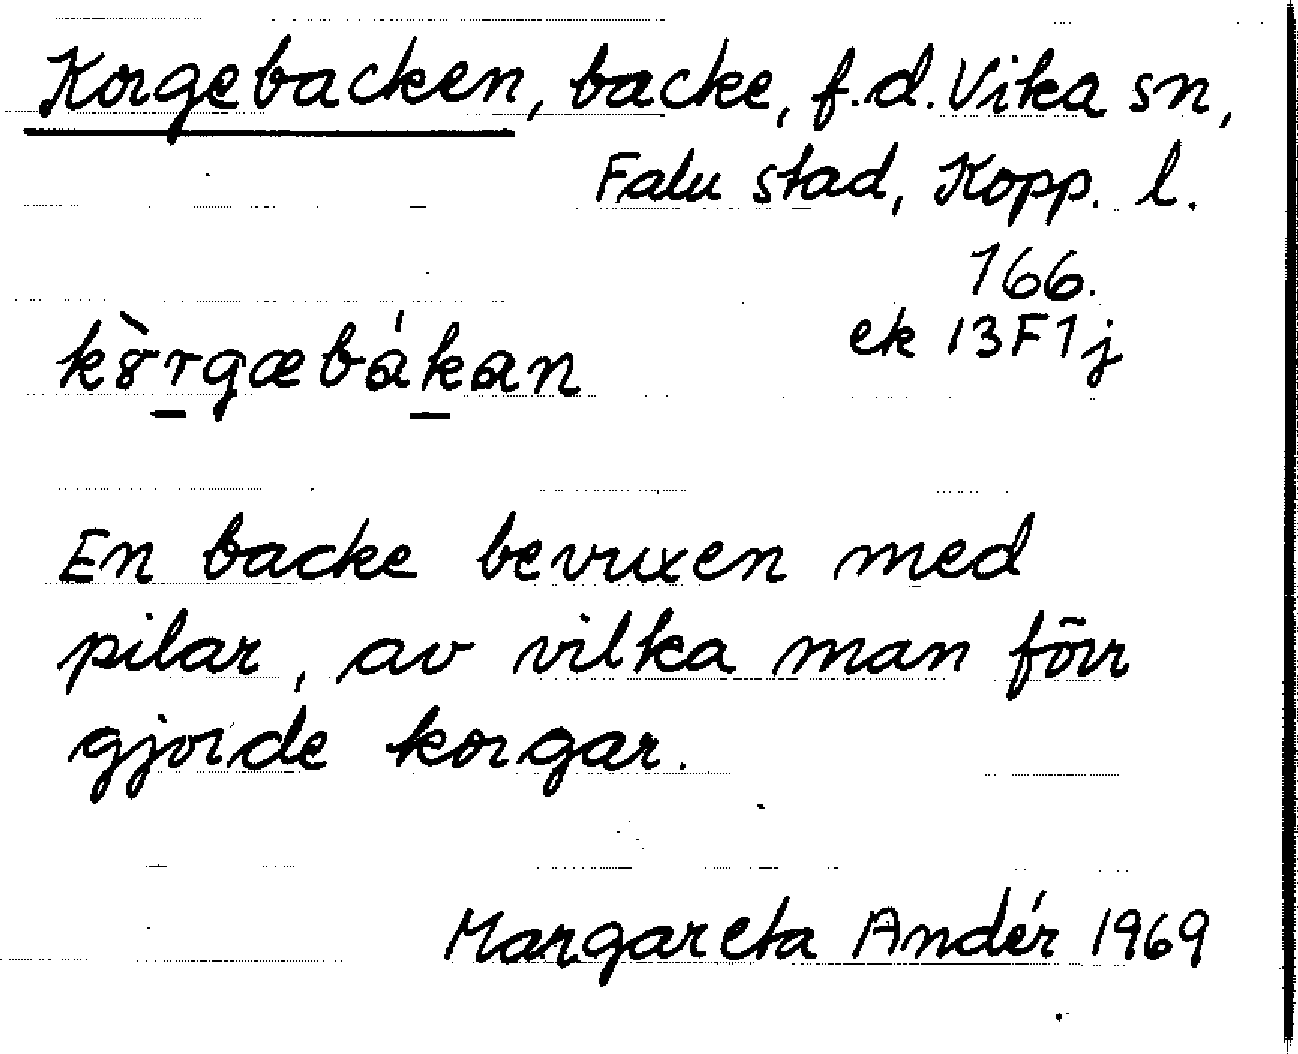 Korgebacken, backe, f.d. Vika sn,
Falu stad, Kopp. l.
166.
ek 13F1j
kȣ̀r̲gæbák̲an
En backe bevuxen med
pilar, av vilka man förr
gjorde korgar.
Margareta Andér 1969